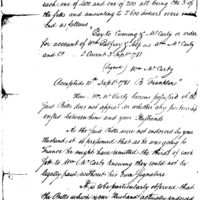 each, one of 300 and one of 200 all being the 3 of
the sets and amounting to 2600 dollars were
as follows
Pay to Cuming & McCarty or order
for account of Wm Palfrey Esq as Wm McCarty
and Co L'Orient 3 Sept 1781
(signed) Wm McCarty
Accepted 10th Sept 1781 B Franklin
How Wm McCarty became possessed of the
said Bills does not appeal or whether any partnership
existed between him and your Husband
As the said Bills were not endorsed by your
Husband it is presumed that as he was going to
France he might have remitted the third of each
set to Wm McCarty knowing they could not be
legally paid without his own signature
It is to be particularly observed that
the Bills where your Husband actually endorsed